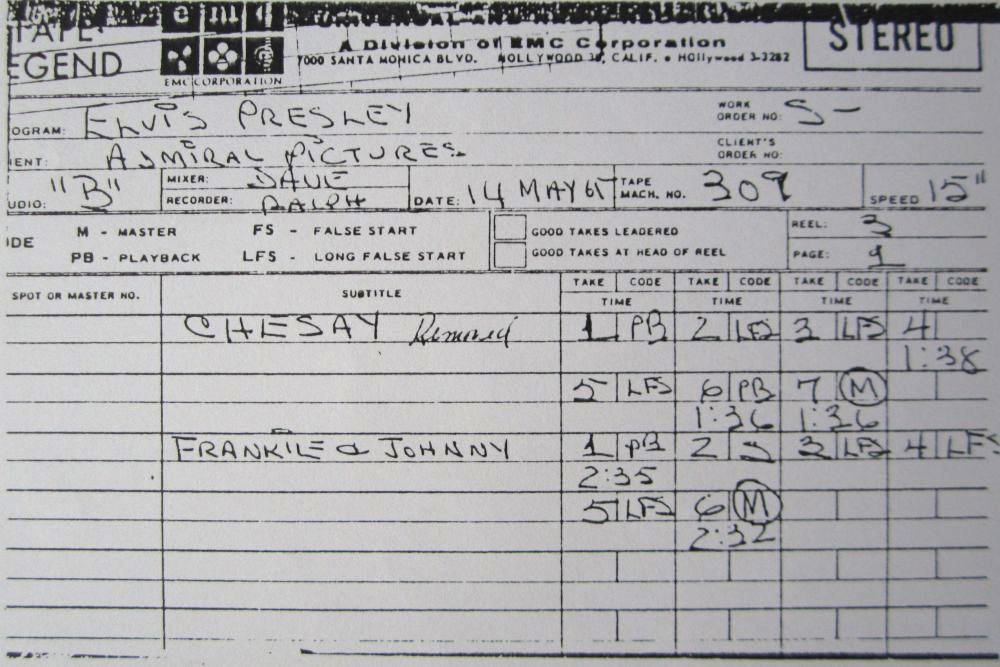 TAPE
LEGEND
EMC CORPORATION
A Division of EMC Corporation
7000 SANTA MONICA BLVD. HOLLYWOOD 38, CALIF. • HOllywood 3-3282
STEREO
OGRAM: ELVIS PRESLEY
WORK ORDER NO: S-
IENT: ADMIRAL PICTURES
CLIENT'S ORDER NO:
UDIO: "B" MIXER: DAVE
RECORDER: RALPH
DATE: 14 MAY 65 TAPE MACH. NO. 309 SPEED 15"
IDE M - MASTER FS - FALSE START
PB - PLAYBACK LFS - LONG FALSE START
GOOD TAKES LEADERED
GOOD TAKES AT HEAD OF REEL
REEL: 3
PAGE: 1
SPOT OR MASTER NO. SUBTITLE TAKE CODE TAKE CODE TAKE CODE TAKE CODE
TIME TIME TIME TIME
CHESAY Removed 1 PB 2 LFS 3 LFS 4
1:38
5 LFS 6 PB 7 M
1:36 1:36
FRANKIE & JOHNNY 1 PB 2 S 3 LFS 4 LFS
2:35
5 LFS 6 M
2:32